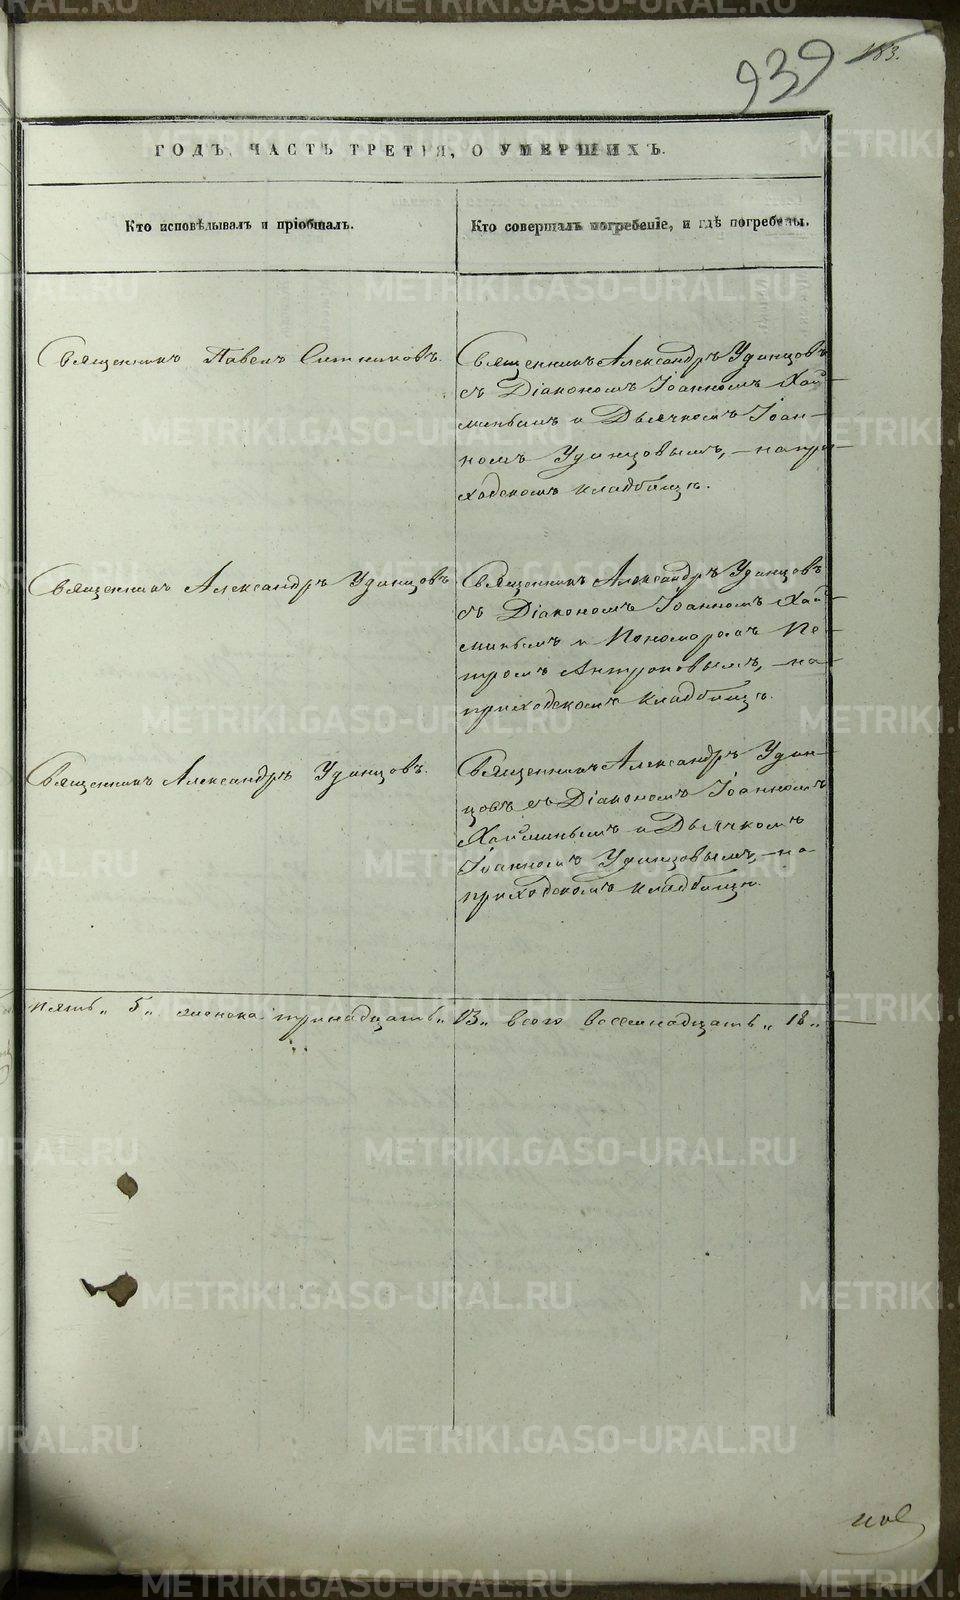 939
183.
ГОДЪ, ЧАСТЬ ТРЕТІЯ, О УМЕРШИХЪ.
Кто исповѣдывалъ и пріобщалъ.
Кто совершалъ погребеніе, и гдѣ погребены.
Священникъ Павелъ Ситниковъ.
Священникъ Александръ Удинцовъ
съ Діакономъ Іоанномъ Хай-
минымъ и Дьячкомъ Іоан-
номъ Удинцовымъ, - на при-
ходскомъ кладбищѣ.
Священникъ Александръ Удинцовъ
Священникъ Александръ Удинцовъ
съ Діакономъ Іоанномъ Хай-
минымъ и Пономаремъ Пе-
тромъ Антроповымъ, - на
приходскомъ кладбищѣ.
Священникъ Александръ Удинцовъ.
Священникъ Александръ Удин-
цовъ съ Діакономъ Іоанномъ
Хайминымъ и Дьячкомъ
Іоанномъ Удинцовымъ, - на
приходскомъ кладбищѣ.
пять „ 5 „ женска тринадцать „ 13 „ всего восемнадцать „ 18 „
METRIKI.GASO-URAL.RU